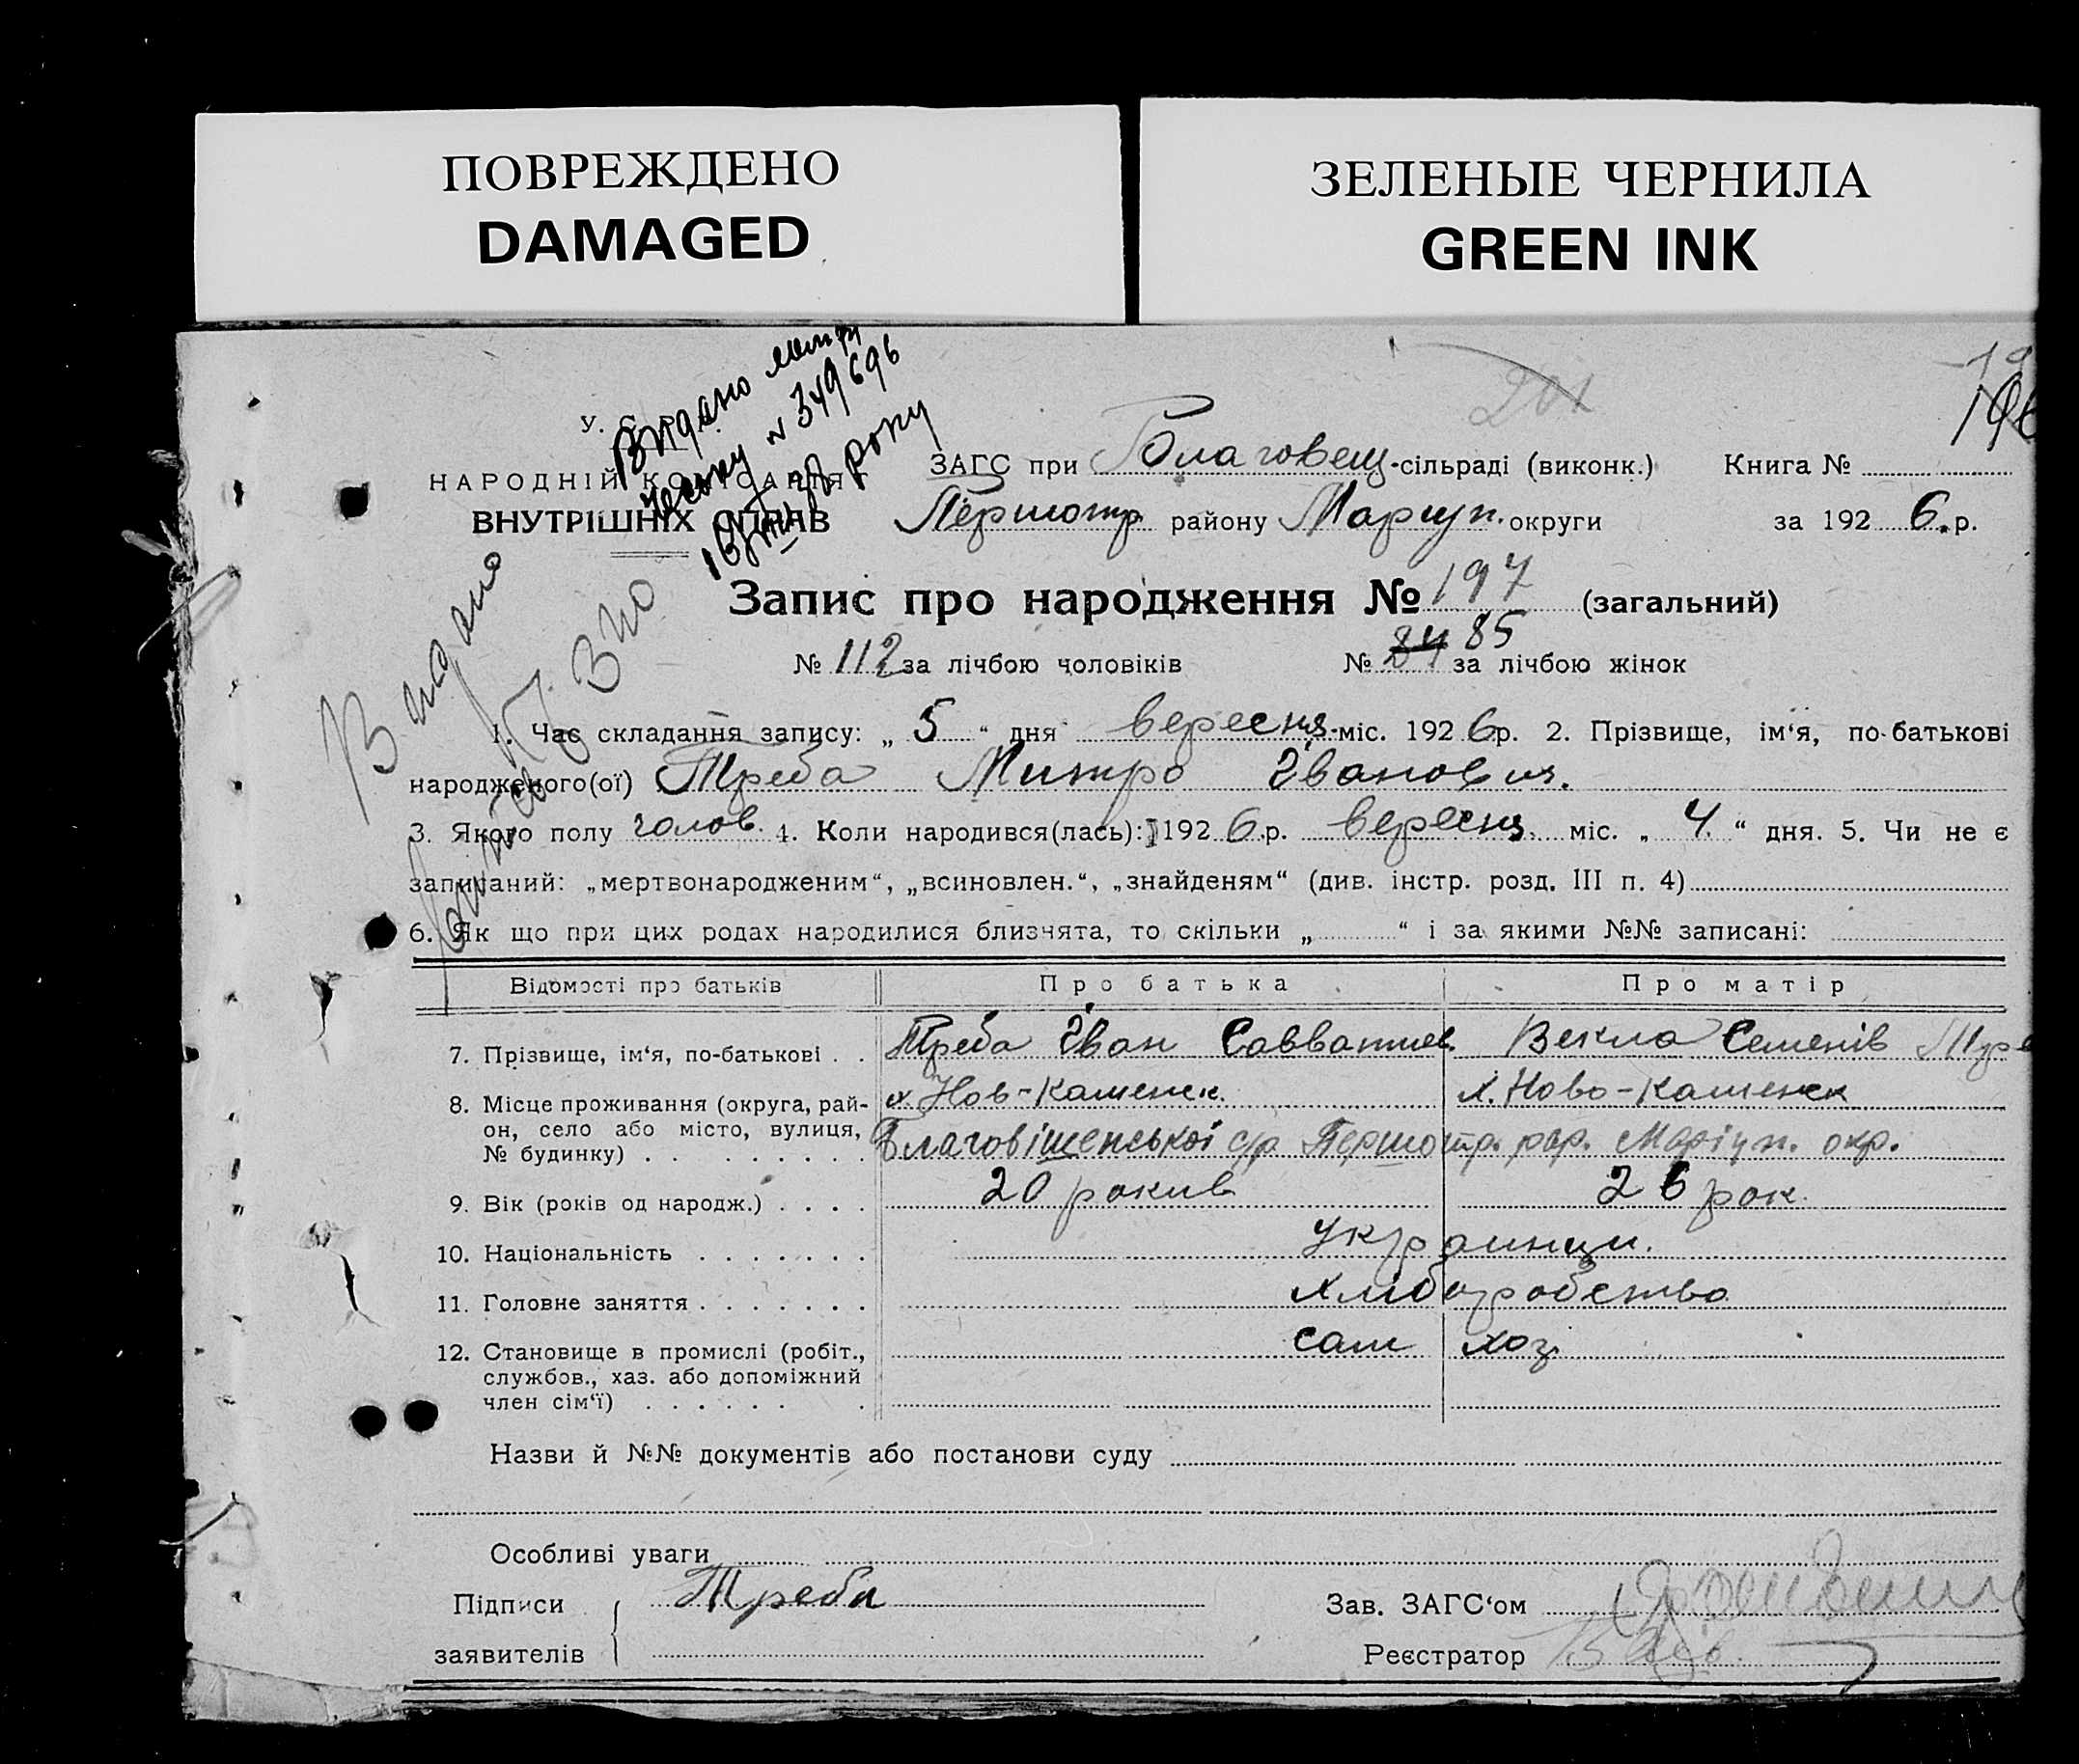 ПОВРЕЖДЕНО
DAMAGED
ЗЕЛЕНЫЕ ЧЕРНИЛА
GREEN INK
Видано
№ 349696
року
201
196
У. С.
НАРОДНІЙ КОМІСАРІЯТ
ВНУТРІШНІХ СПРАВ
ЗАГС при Благовещ-сільраді (виконк.) Книга №
Першотр. району Маріуп. округи за 1926.р.
Видано
Запис про народження № 197 (загальний)
№ 112 за лічбою чоловіків № 84 85 за лічбою жінок
1. Час складання запису: „ 5 “ дня вересня міс. 1926р. 2. Прізвище, ім‘я, по-батькові
народженого(ої) Треба Митро Іванович.
3. Якого полу чолов. 4. Коли народився(лась): 1926.р. вересня міс. „ 4. “ дня. 5. Чи не є
записаний: „мертвонародженим“, „всиновлен.“, „знайденям“ (див. інстр. розд. III п. 4)
6. Як що при цих родах народилися близнята, то скільки „ “ і за якими №№ записані:
Відомості про батьків Про батька Про матір
7. Прізвище, ім‘я, по-батькові . . Треба Іван Савватиев. Векла Семенів Тре
8. Місце проживання (округа, рай- х. Нов-Каменск. х. Ново-Каменск
он, село або місто, вулиця, Благовіщенської с/р Першотр. рар. Маріуп. окр.
№ будинку) . . . . . . . . .
9. Вік (років од народж.) . . . . 20 рокив 26 рок.
10. Національність . . . . . . . Украинци.
11. Головне заняття . . . . . . . Хлиборобство
12. Становище в промислі (робіт., сам хоз.
службов., хаз. або допоміжний
член сім‘ї) . . . . . . .
Назви й №№ документів або постанови суду
Особливі уваги
Підписи Треба Зав. ЗАГС‘ом
заявителів Реєстратор